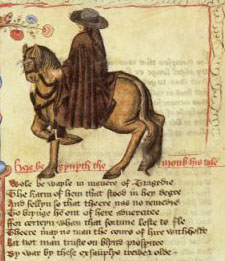 heere bigynneth the Monk his tale
Wole biwaille in manere of Tragedie
The harm of hem that stoode in heigh degree
And fillen so that ther nas no remedie
To brynge hem out of hir adversitee
For certein whan that fortune list to flee
Ther may no man the cours of hire withholde
Lat no man truste on blynd prosperitee
Be war by thise ensamples trewe olde